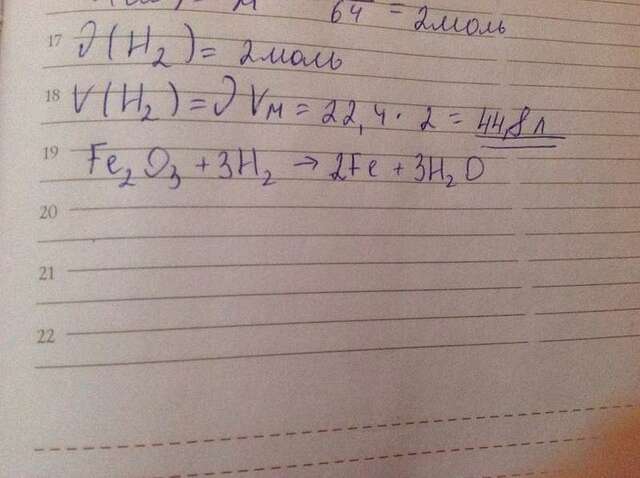 64 = 2моль
17 ν(H₂) = 2моль
18 V(H₂) = ν Vм = 22,4 · 2 = 44,8 л
19 Fe₂O₃ + 3H₂ → 2Fe + 3H₂O
20
21
22